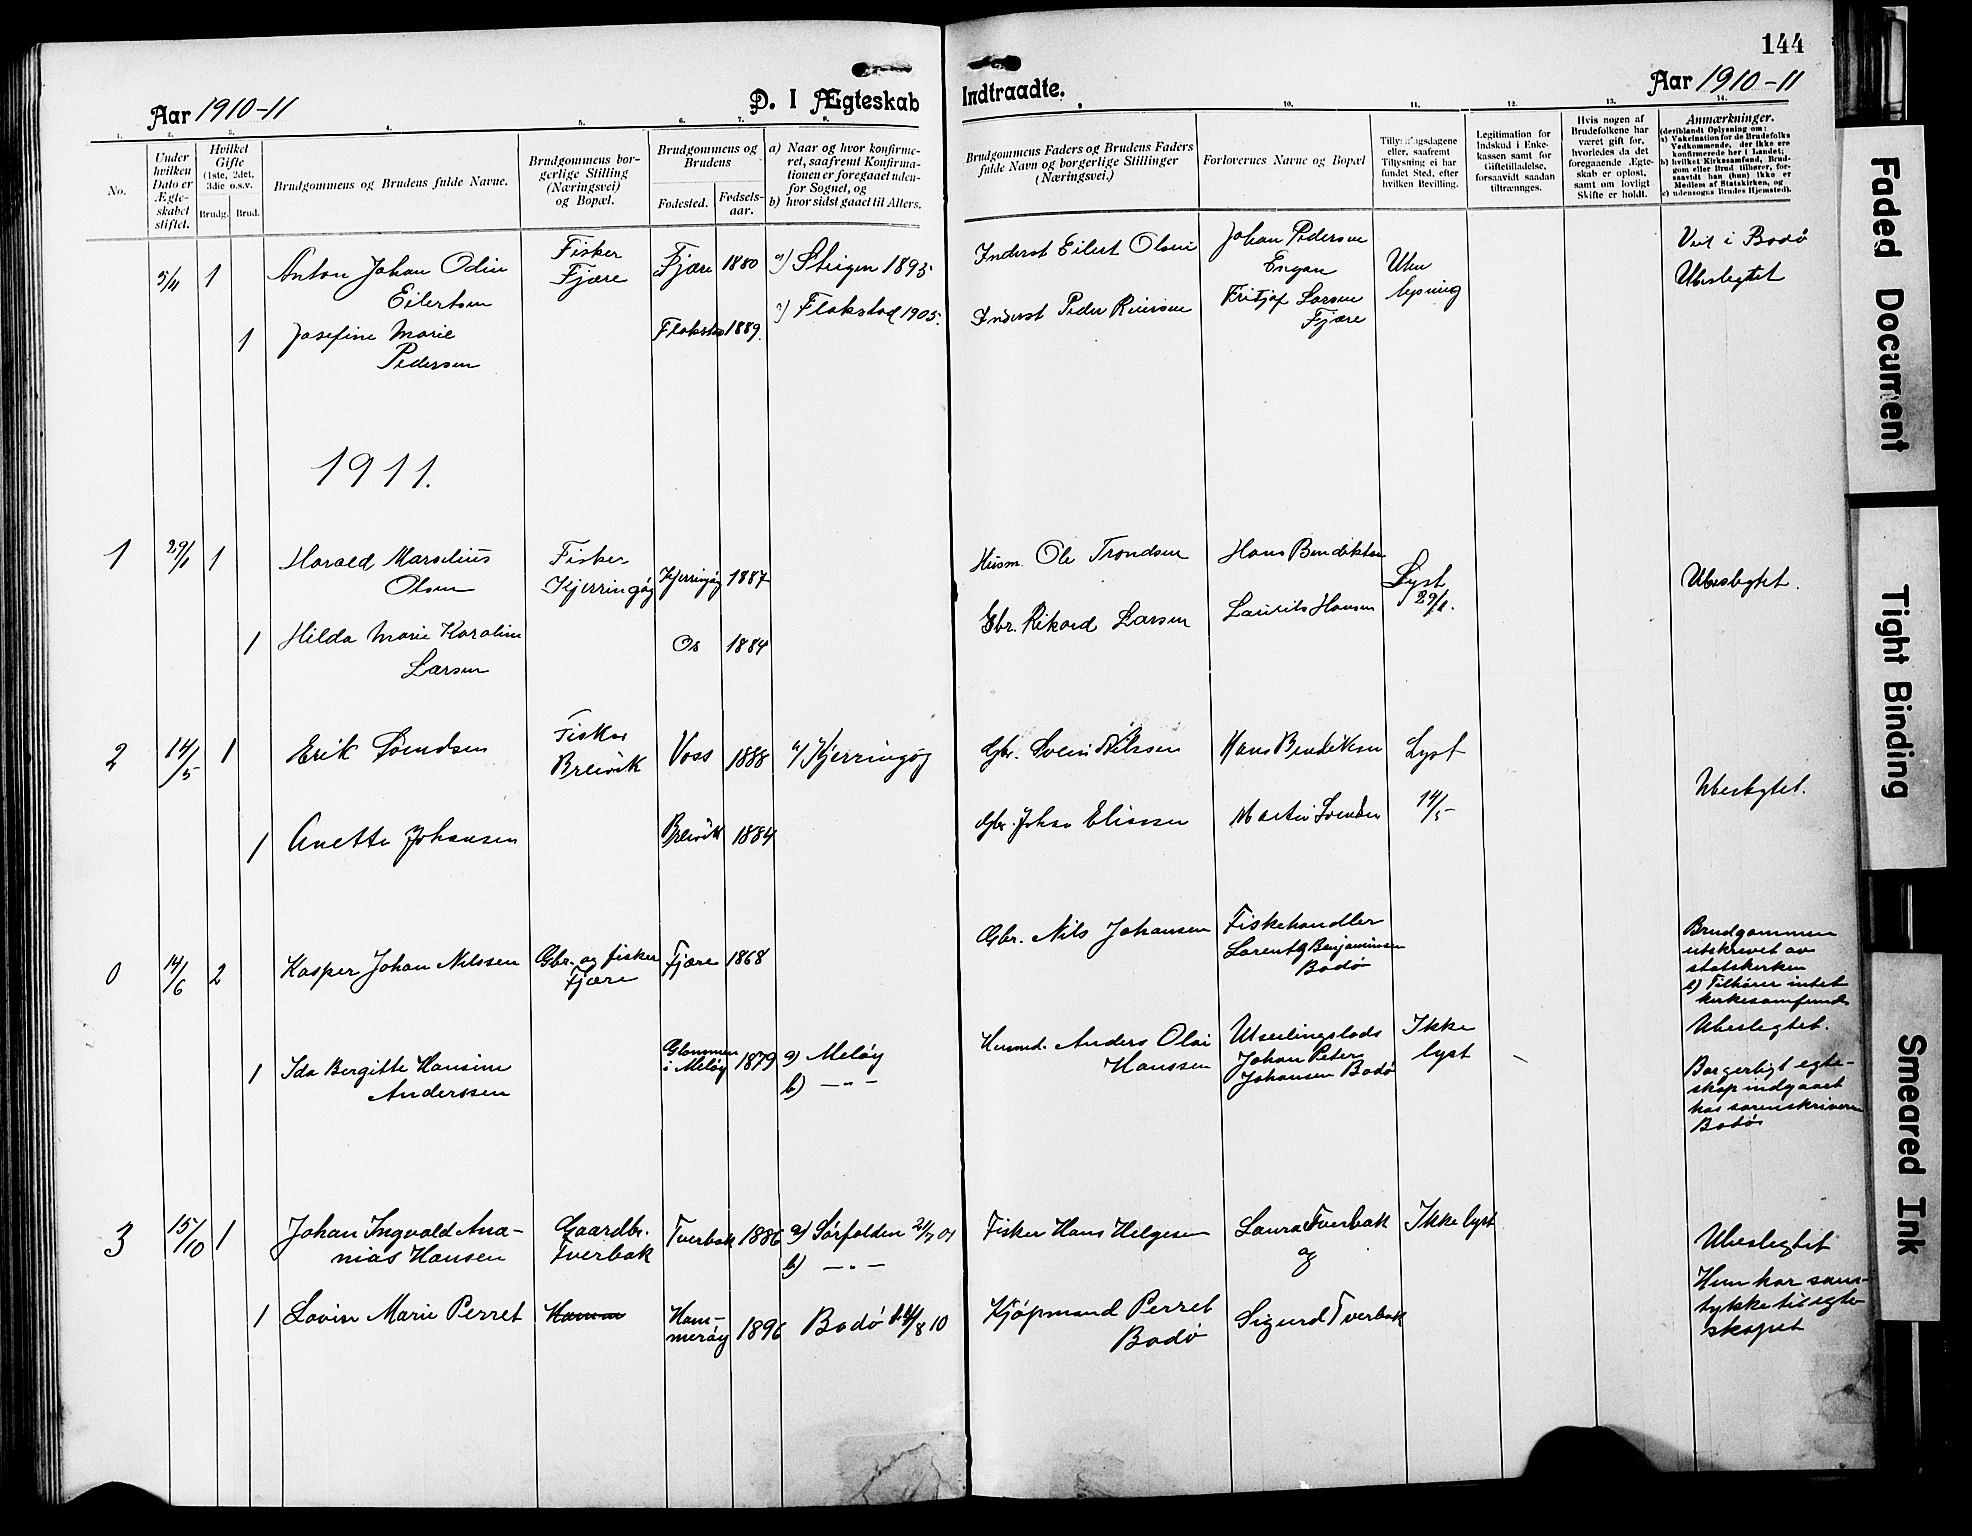 144
Aar 1910-11
D. I Ægteskab Indtraadte.
Aar 1910-11
1. 2. 3. 4. 5. 6. 7. 8. 9. 10. 11. 12. 13. 14.
No.
Under
hvilken
Dato er
Ægte-
skabet
stiftet.
Hvilket
Gifte
(1ste, 2det,
3die o.s.v.
Brudg. Brud.
Brudgommens og Brudens fulde Navne.
Brudgommens bor-
gerlige Stilling
(Næringsvei)
og Bopæl.
Brudgommens og
Brudens
Fødested.
Fødsels-
aar.
a) Naar og hvor konfirme-
ret, saafremt Konfirma-
tionen er foregaaet uden-
for Sognet, og
b) hvor sidst gaaet til Alters.
Brudgommens Faders og Brudens Faders
fulde Navn og borgerlige Stillinger
(Næringsvei.)
Forlovernes Navne og Bopæl
Tillysningsdagene
eller, saafremt
Tillysning ei har
fundet Sted, efter
hvilken Bevilling.
Legitimation for
Indskud i Enke-
kassen samt for
Giftetilladelse,
forsaavidt saadan
tiltrænges.
Hvis nogen af
Brudefolkene har
været gift før,
hvorledes da det
foregaaende Ægte-
skab er opløst,
samt om lovligt
Skifte er holdt.
Anmærkninger.
(deriblandt Oplysning om:
a) Vakcination for de Brudefolks
Vedkommende, der ikke ere
konfirmerede her i Landet;
b) hvilket Kirkesamfund, Brud-
gom eller Brud tilhører, for-
saavidt han (hun) ikke er
Medlem af Statskirken, og
c) udensogns Brudes Hjemsted).
5/11 1 Anton Johan Odin
Eilertsen
Fisker
Fjære
Fjære 1880 a) Steigen 1895
Inderst Eilert Olsen
Johan Pedersen
Engan
Uten
lysning
Viet i Bodø
Ubeslegtet
1 Josefine Marie
Pedersen
Flakstad 1889. a) Flakstad 1905.
Inderst Peder Reiersen
Fritjof Larsen
Fjære
1911.
1 29/1 1 Harald Marselius
Olsen
Fisker
Kjerringøy
Kjerringøy 1887
Husm. Ole Trondsen
Hans Bendiktsen
Lyst
29/1.
Ubeslegtet.
1 Hilda Marie Karoline
Larsen
Os 1884
Gbr. Rikard Larsen
Laurits Hansen
2 14/5 1 Erik Svendsen
Fisker
Breivik
Voss 1888 a) Kjerringøy
Gbr. Svein Nilssen
Hans Bendiktsen
Lyst
14/5
Ubeslegtet.
1 Anette Johansen
Breivik 1884
Gbr. Johan Eliassen
Martin Svendsen
0 14/6 2 Kasper Johan Nilssen
Gbr. og fisker
Fjære
Fjære 1868
Gbr. Nils Johansen
Fiskehandler
Lorents Benjaminsen
Bodø
Brudgommen
utskrevet av
statskirken
b) Tilhører intet
kirkesamfund
Ubeslegtet.
1 Ida Bergitte Hansine
Anderssen
Glommen
i Meløy 1879 a) Meløy
b) — " —
Husmd. Anders Olai
Hanssen
Utseilingslods
Johan Peter
Johansen Bodø
Ikke
lyst
Borgerligt egte-
skap indgaaet
hos sorenskriveren
Bodø
3 15/10 1 Johan Ingvald Ana-
nias Hansen
Gaardbr.
Tverbak
Tverbak 1886 a) Sørfolden 2/7 01
b) — " —
Fisker Hans Helgesen
Laura Tverbak
og
Ikke lyst
Ubeslegtet
Hun har sam-
tykke til egte-
skapet
1 Lovin Marie Perret
Ham-
merøy 1896 Bodø 14/8 10
Kjøpmand Perret
Bodø
Sigurd Tverbak
Faded Document
Tight Binding
Smeared Ink